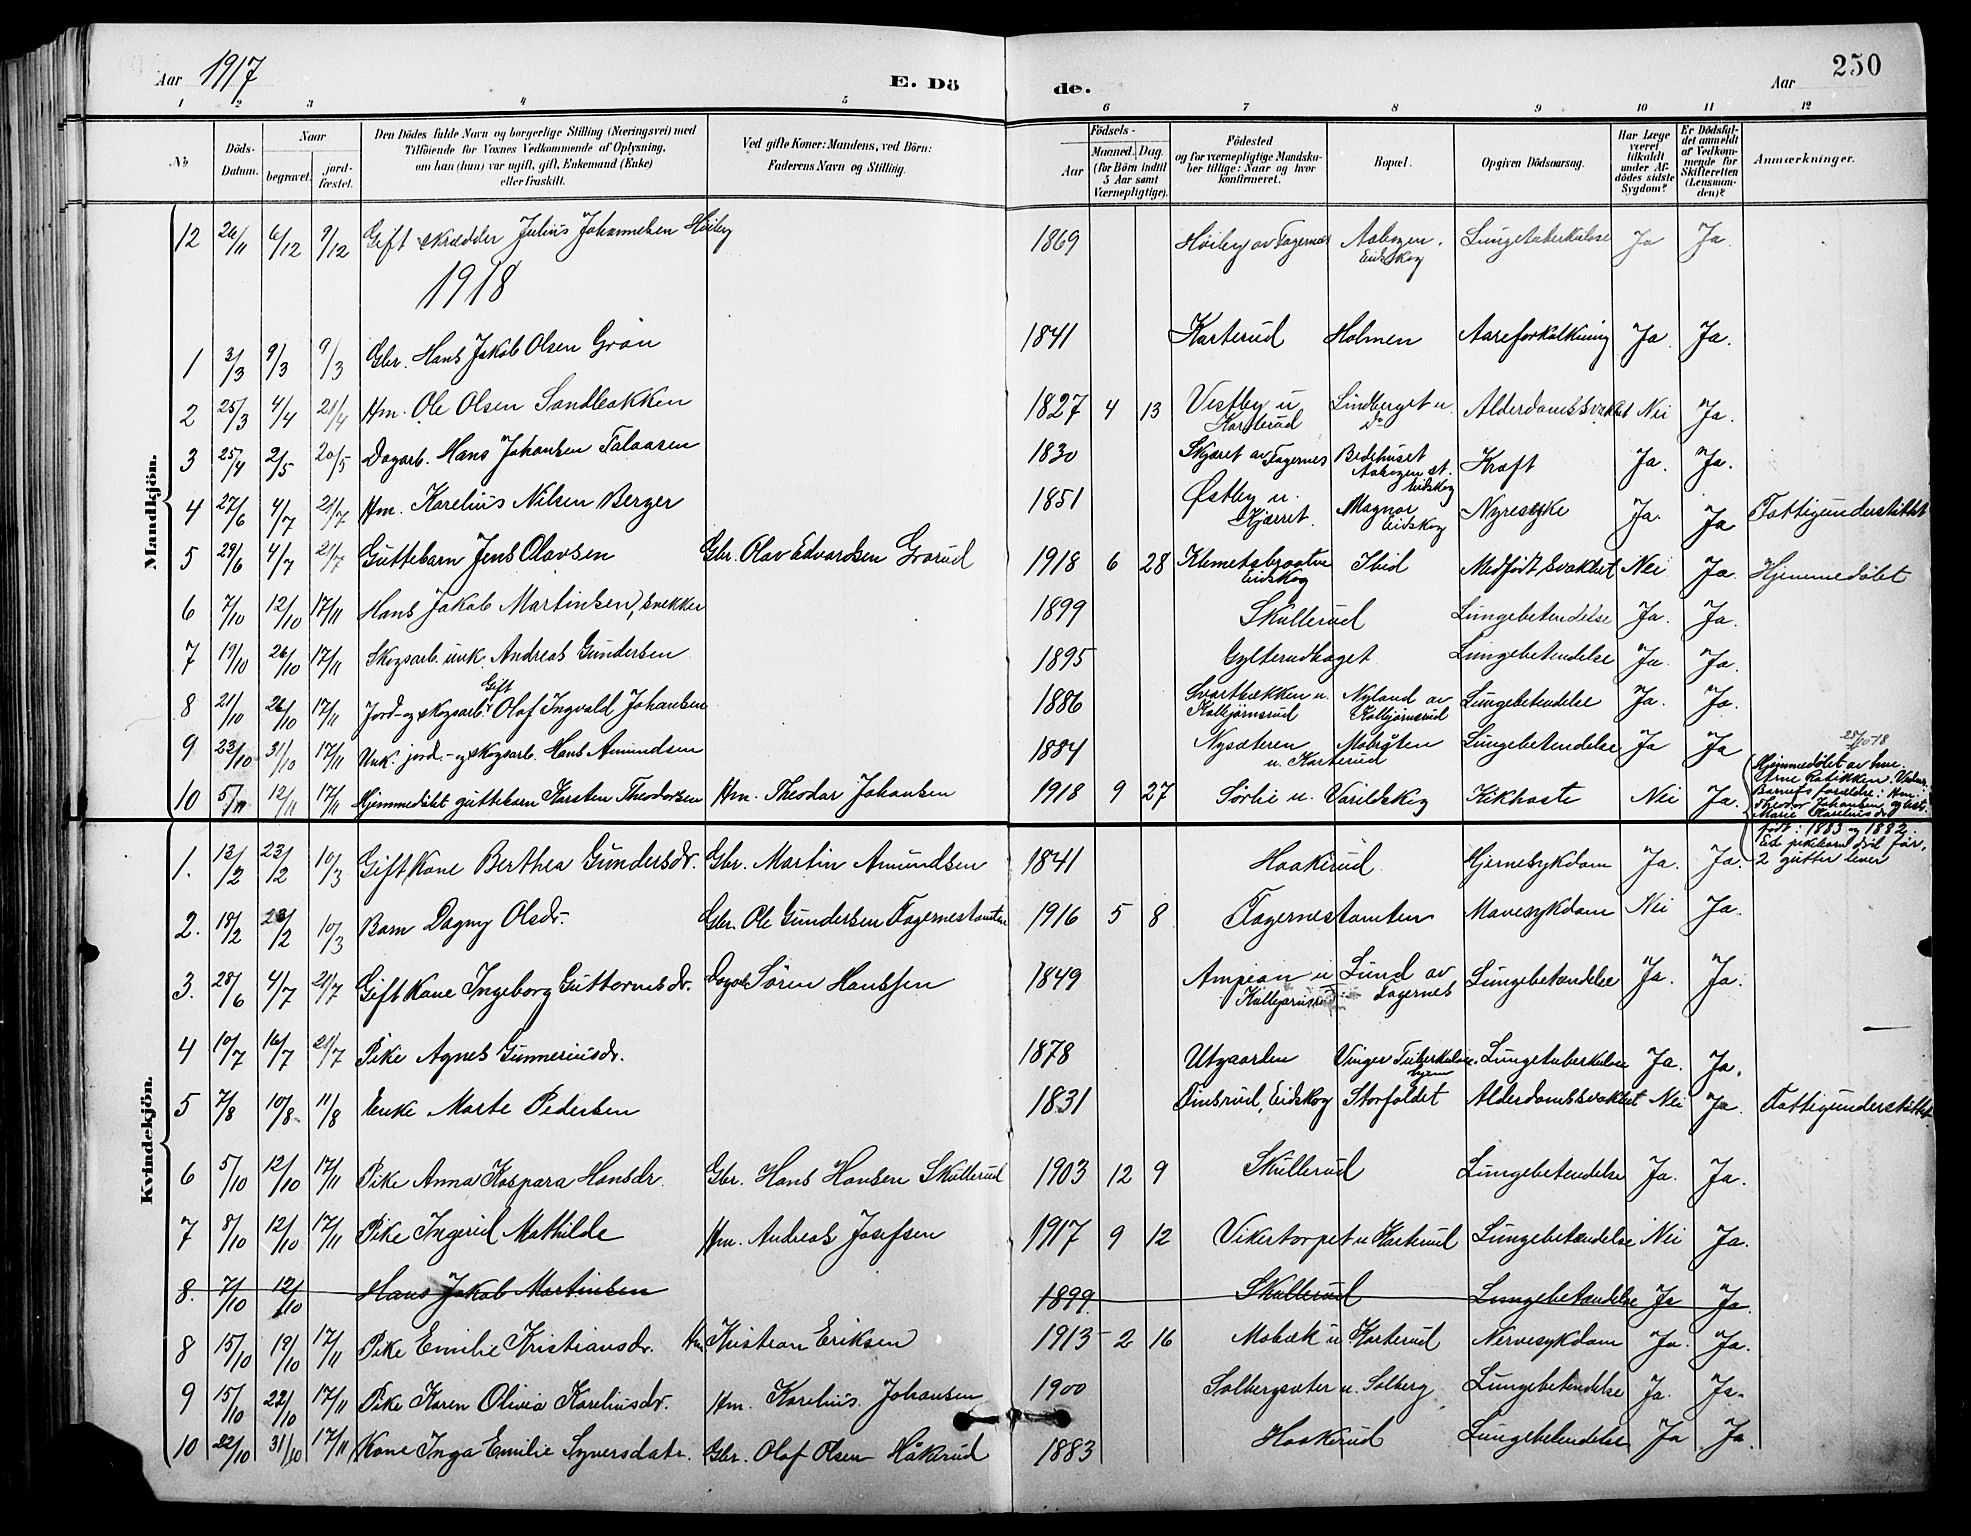 Aar 1917 E. Dö
de. Aar 250
1 2 3 4 5 6 7 8 9 10 11 12
№ Döds-Datum. Naar begravet. jord-fæstet. Den Dödes fulde Navn og borgerlige Stilling (Næringsvei) med Tilföiende för Voxnes Vedkommende af Oplysning, om han (hun) var ugift, gift, Enkemand (Enke) eller fraskilt. Ved gifte Koner: Mandens, ved Börn: Faderens Navn og Stilling. Födsels- Aar Maaned. Dag. (for Börn indtil 5 Aar samt Værnepligtige). Födested og for værnepligtige Mandska-ber tillige: Naar og hvor konfirmeret. Bopæl. Opgiven Dödsaarsag. Har Læge været tilkaldt under Af-dödes sidste Sygdom? Er Dödsfal-det anmeldt af Vedkom-mende for Skifteretten (Lensman-den)? Anmærkninger.
Mandkjön.
12 26/11 6/12 9/12 Gift skrædder Julius Johannesen Høiby 1869 Høiby av Fagernes Aabogen, Eidskog Lungetuberkulose Ja Ja.
1918
1 3/3 9/3 9/3 Gbr. Hans Jakob Olsen Grön 1841 Karterud Holmen Aareforkalkning Ja Ja.
2 25/3 4/4 21/4 Hm. Ole Olsen Sandbakken 1827 4 13 Vestby u Karterud Lindberget u. Do Alderdomssvakhet Nei Ja.
3 25/4 2/5 20/5 Dagarb. Hans Johansen Talaasen 1830 Skjæret av Fagernes Bedehuset Aabogen st. Eidskog Kræft Ja. Ja.
4 27/6 4/7 21/7 Hm. Karelius Nilsen Berger 1851 Østby u. Kjærret. Magnor Eidskog Nyresyke Ja. Ja Fattigunderstöttet
5 29/6 4/7 21/7 Guttebarn Jens Olavsen Gbr. Olav Edvardsen Grorud 1918 6 28 Klemetsbraaten Eidskog Ibid Medfödt svakhet Nei Ja Hjemmedöbt
6 7/10 12/10 17/11 Hans Jakob Martinsen, snekker 1899 Skullerud Lungebetendelse Ja. Ja.
7 19/10 26/10 17/11 Skogsarb. unk. Andreas Gundersen 1895 Gylterudhaget Lungebetendelse Ja. Ja.
8 21/10 26/10 17/11 Jord- og skogsarb. Gift Olaf Ingvald Johansen 1886 Svartbækken u. Kolbjørnsrud Nyland av Kolbjørnsrud Lungebetendelse Ja. Ja.
9 23/10 31/10 17/11 Unk. jord- og skogsarb. Hans Amundsen 1884 Nysæteren u. Karterud Mobråten Lungebetendelse Ja Ja
10 5/11 12/11 17/11 Hjemmedöbt guttebarn Karsten Theodorsen Hm. Theodor Johansen 1918 9 27 Sørlie u. Varildskog Kikhoste Nei Ja. Hjemmedöbt av hm. Arne
Barnets forældre: Hm. Theodor Johansen og hst. Marie Kareliusdr.
født: 1883 og 1882.
Et pikebarn död før,
2 gutter lever
Kvindekjön.
1. 13/2 23/2 10/3 Gift Kone Berthea Gundersdr. Gbr. Martin Amundsen 1841 Haakerud Hjernesykdom Ja. Ja.
2. 18/2 23/2 10/3 Barn Dagny Olsdr. Gbr. Ole Gundersen Fagernestomten 1916 5 8 Fagernestomten Mavesykdom Nei Ja.
3. 28/6 4/7 21/7 Gift Kone Ingeborg Guttormsdr. Dagarb Sören Hanssen 1849 Ampian u Kolbjørnsrud Lund av Fagernes Lungebetændelse Ja. Ja.
4 10/7 16/7 21/7 Pike Agnes Gunneriusdr. 1878 Utgaarden Vinger Tuberkulosehjem Lungetuberkulose Ja. Ja.
5 7/8 10/8 11/8 Enke Marte Pedersen 1831 Finsrud, Eidskog Storfaldet Alderdomssvakhet Nei Ja. Fattigunderstöttet
6 5/10 12/10 17/11 Pike Anna Kaspara Hansdr. Gbr. Hans Hansen Skullerud 1903 12 9 Skullerud Lungebetendelse Ja. Ja.
7 8/10 12/10 17/11 Pike Ingerid Mathilde Hm. Andreas Josefsen 1917 9 12 Vikertorpet u Karterud Lungebetændelse Nei Ja.
8. 7/10 12/10 Hans Jakob Martinsen 1899 Skullerud Lungebetændelse Ja Ja.
8 15/10 19/10 17/11 Pike Emilie Kristiansdr. Hm Kristian Eriksen 1913 2 16 Mobæk u Karterud Nervesykdom Ja. Ja.
9 15/10 22/10 17/11 Pike Karen Olivia Kareliusdr. Hm. Karelius Johansen 1900 Solbergsæter u. Solberg Lungebetendelse Ja. Ja.
10 22/10 31/10 17/11 Kone Inga Emilie Syversdatr. Gbr. Olaf Olsen Håkerud 1883 Haakerud Lungebetendelse Ja Ja.